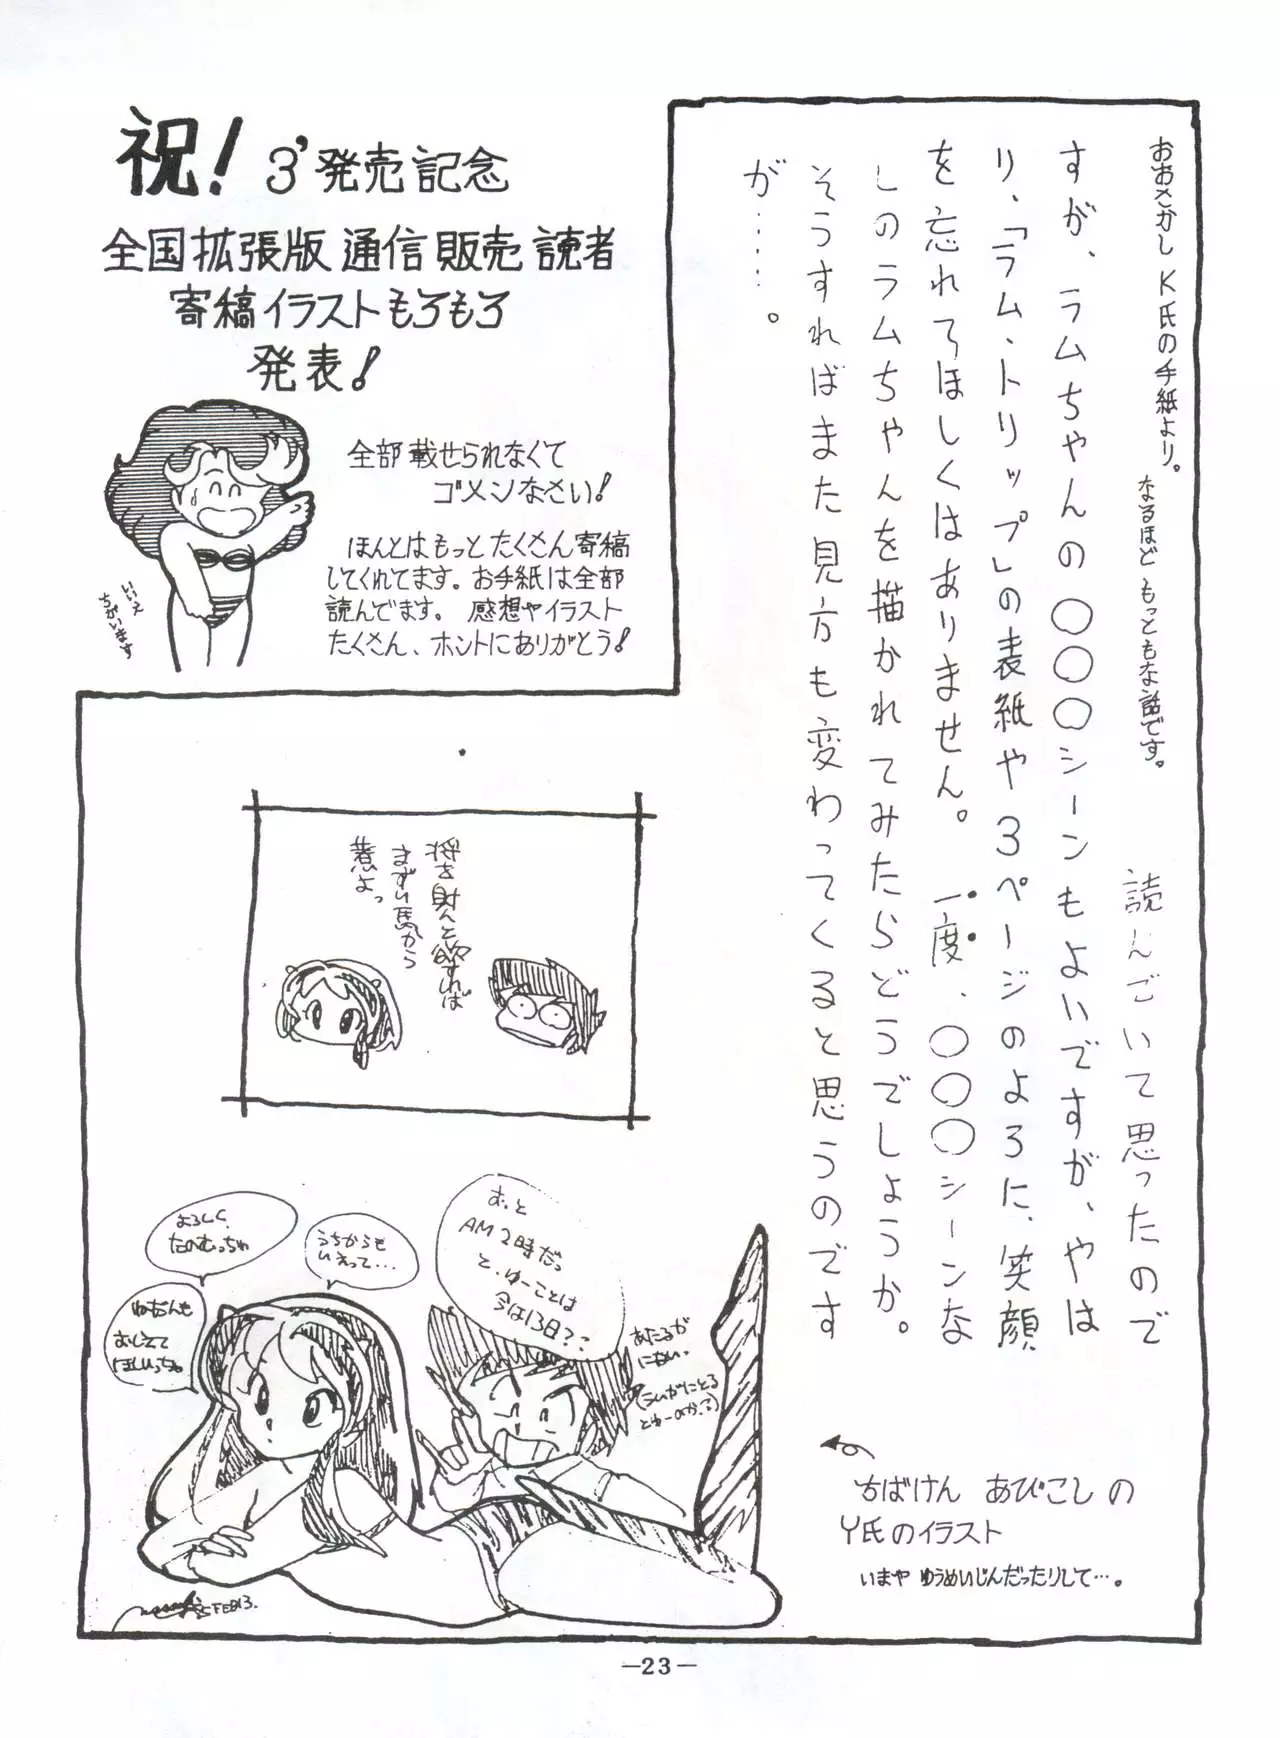 祝! 3'発売記念
全国拡張版 通信販売 読者
寄稿イラストもろもろ
発表!
全部載せられなくて
ゴメンなさい!
ほんとはもっとたくさん寄稿
してくれてます。お手紙は全部
読んでます。 感想やイラスト
たくさん、ホントにありがとう!
いいえ
ちがいます
おおさかし K氏の手紙より。
なるほど もっともな話です。
読んごいて思ったので
すが、ラムちゃんの〇〇〇シーンもよいですが、やは
り、「ラム・トリップ」の表紙や3ページのよろに、笑顔
を忘れてほしくはありません。 一度、〇〇〇シーンな
しのラムちゃんを描かれてみたらどうでしょうか。
そうすればまた見方も変わってくると思うのです
が……。
将を射んと欲すれば
まずい馬から
慧よっ
よろしく
たのむっちゃ
うちからも
いえって…
おしえて
ほしいっちゃ
AM2時だっ
と、ゆーことは
今は13日??
あたるが
にない.
ちばけん あびこしの
Y氏のイラスト
いまや ゆうめいじんだったりして…。
FEB13.
—23—